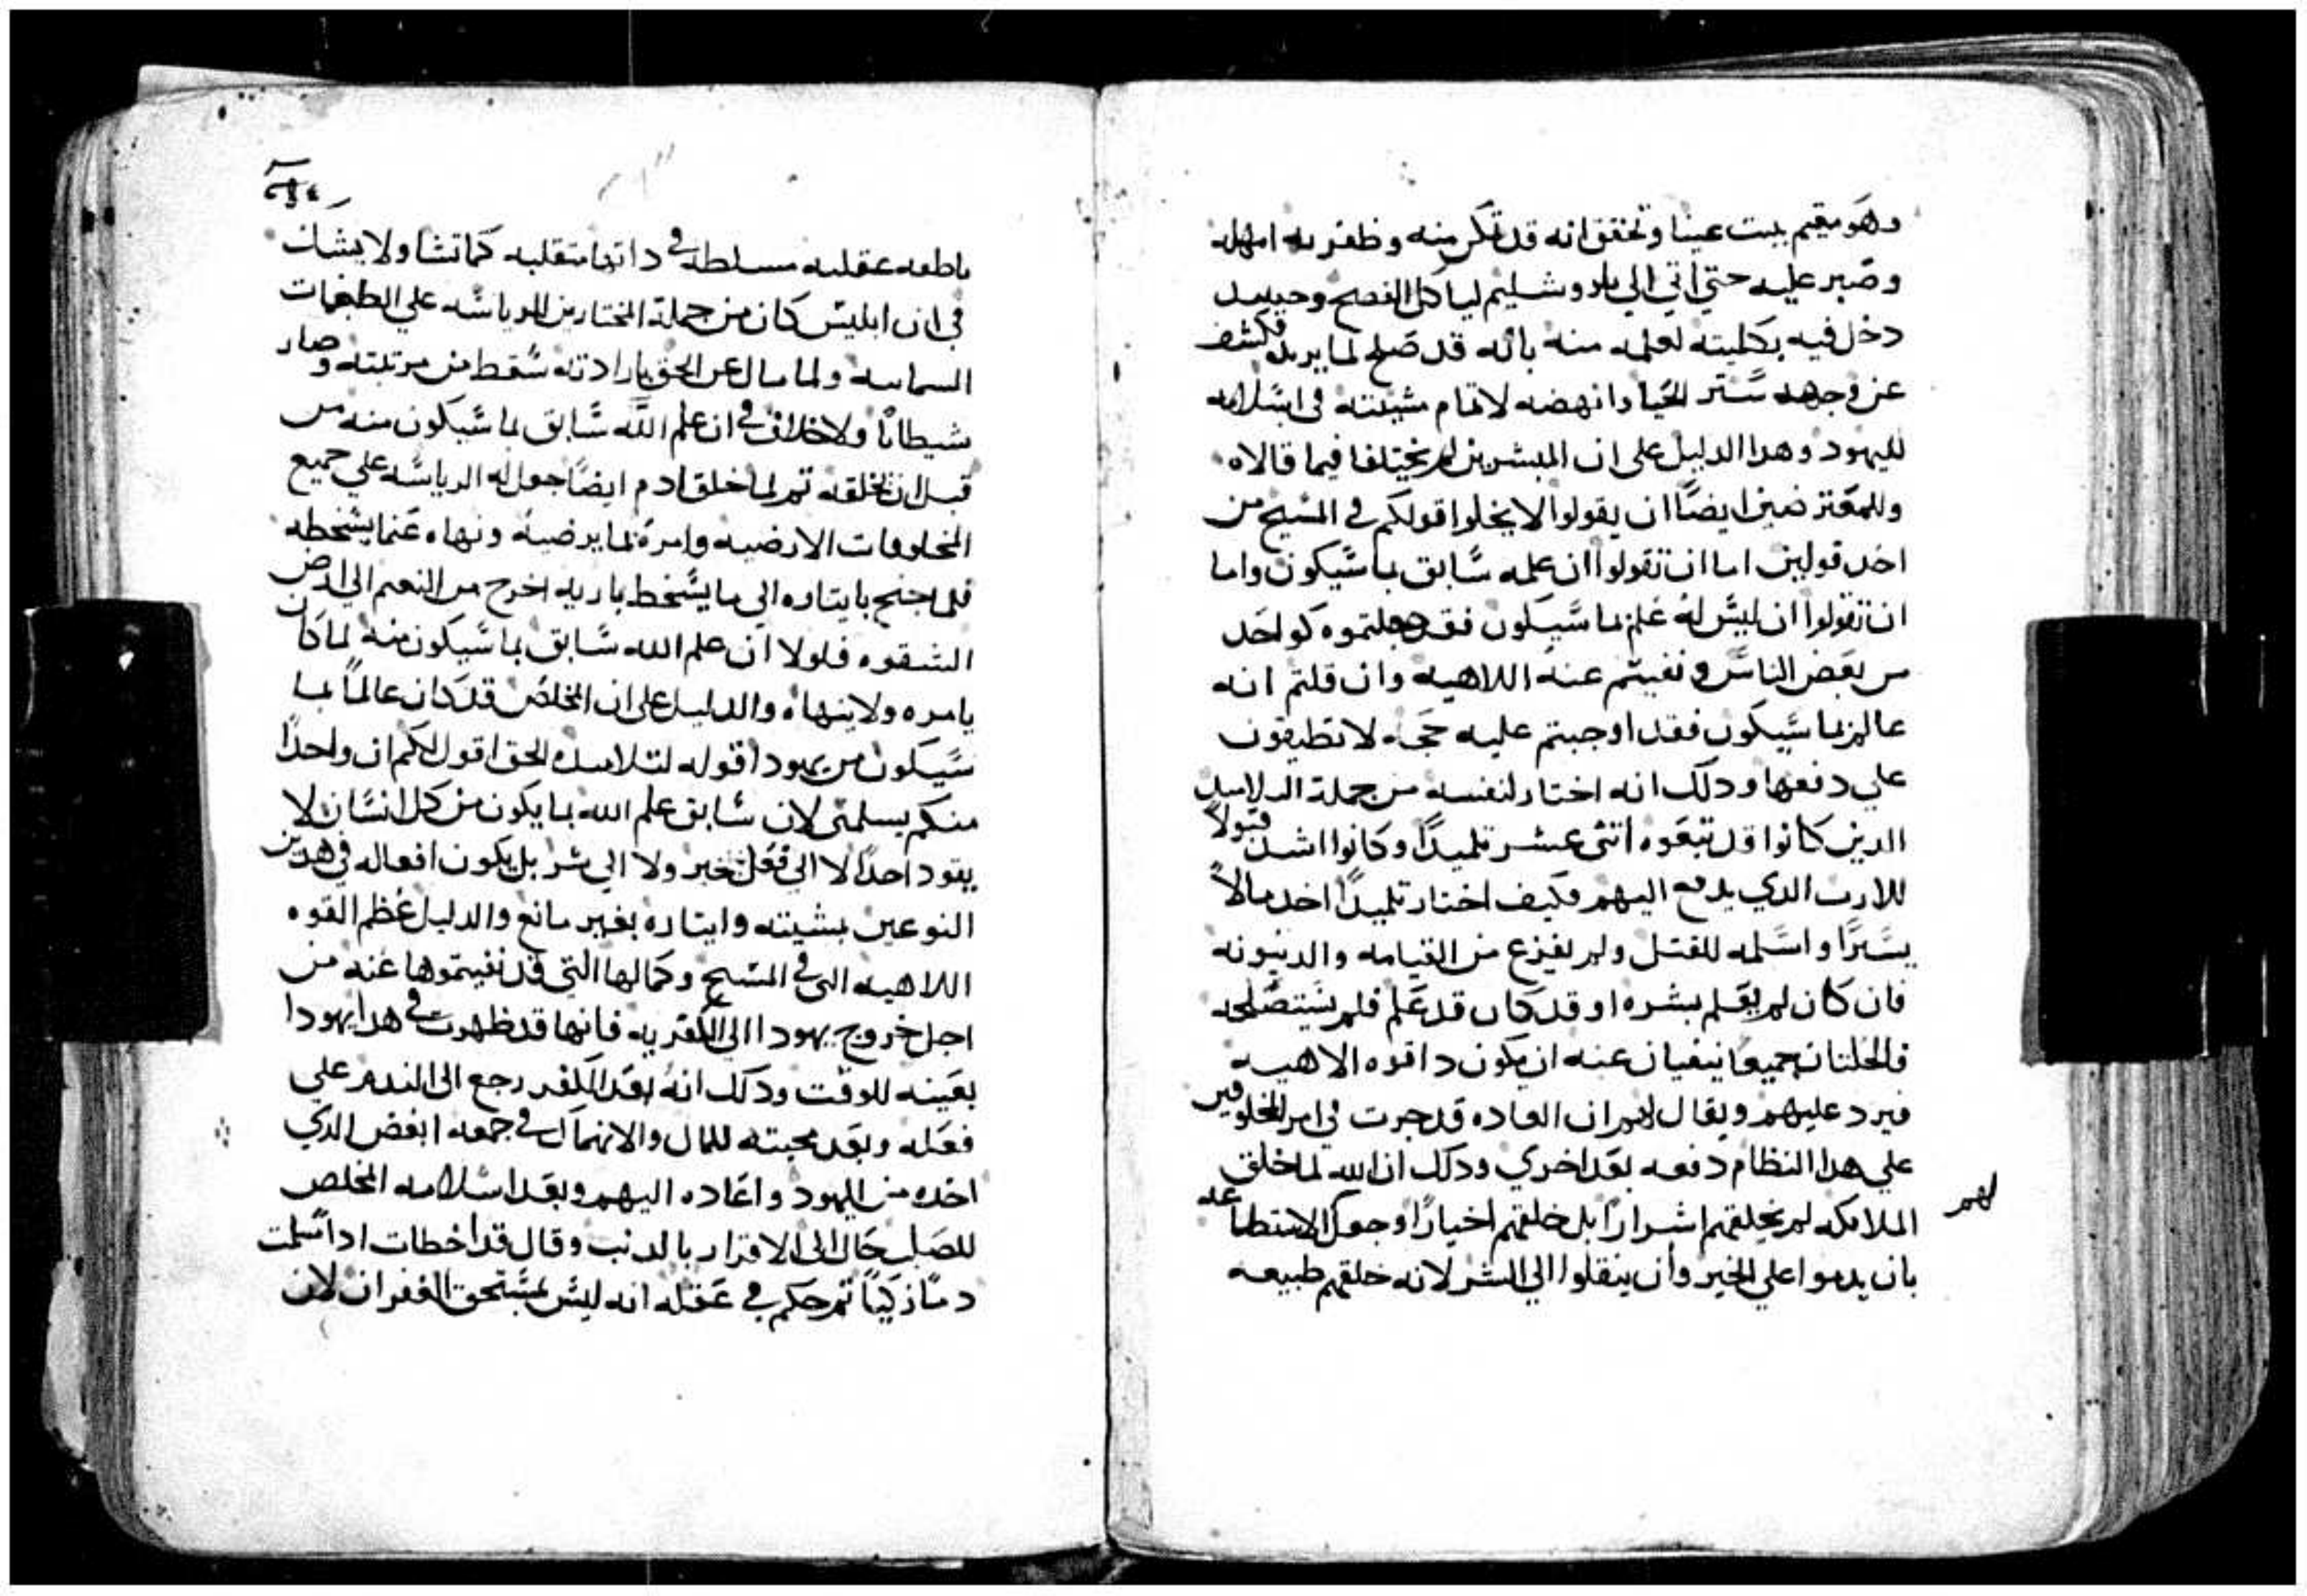 وهو مقيم ببيت عنيا وتحقق انه قد تمكن منه وظفر به امهله
وصبر عليه حتي اتي الي ياروشليم لياكل الفصح وحينيد
دخل فيه بكليته لعلمه منه بانه قد صلح لما يريد فكشف
عن وجهه ستر الحيا وانهضه لاتمام مشيته في اسلامه
لليهود وهدا الدليل علي ان المبشرين لم يختلفا فيما قالاه
وللمعترضين ايضًا ان يقولوا لا يخلوا قولكم في المسيح من
احد قولين اما ان تقولوا ان علمه سابق بما سيكون واما
ان تقولوا ان ليس له علم بما سيكون فقد جعلتموه كواحد
من بعض الناس ونفيتم عنه اللاهيه وان قلتم انه
عالم بما سيكون فقد اوجبتم عليه حجه لا تطيقون
علي دفعها ودلك انه اختار لنفسه من جملة التلاميد
الدين كانوا قد تبعوه اتني عشر تلميدًا وكانوا اشد قبولاً
للارت الدي يدفع اليهم فكيف اختار تلميدًا اخد مالاً
يسيرًا واسلمه للقتل ولم يفزع من القيامه والدينونه
فان كان لم يعلم بشره او قد كان قد علم فلم يستصلحه
فالخلتان جميعًا ينفيان عنه ان يكون دا قوه الاهيه
فيرد عليهم ويقال لهم ان العاده قد جرت في امر المخلوقين
علي هدا النظام دفعه بعد اخري ودلك ان الله لما خلق
الملايكه لم يخلقهم اشرارًا بل خلقهم اخيارًا وجعل الاستطاعه
لهم
بان يدموا علي الخير وان ينقلوا الي الشر لانه خلقهم طبيعه
ناطقه عقليه مسلطه في داتها متقلبه كما تشا ولا يشك
في ان ابليس كان من جملة المختارين للرياسه علي الطغمات
السماييه ولما مال عن الحق بارادته سقط من مرتبته وصار
شيطانًا ولا خلاف في ان علم الله سابق بما سيكون منه من
قبل ان يخلقه تم لما خلق ادم ايضًا جعل له الرياسه علي جميع
المخلوقات الارضيه وامره بما يرضيه ونهاه عنما يسخطه
فلما جنح بايتاره الي ما يسخط باريه اخرج من النعيم الي ارض
الشقوه فلولا ان علم الله سابق بما سيكون منه لما كان
يامره ولا ينهاه والدليل علي ان المخلص قد كان عالمًا بما
سيكون من يهودا قوله لتلاميده الحق اقول لكم ان واحدًا
منكم يسلمني لان سابق علم الله بما يكون من كل انسان لا
يقود احدًا لا الي فعل خير ولا الي شر بل يكون افعاله في هدين
النوعين بمشيته وايتاره بغير مانع والدليل عظم القوه
اللاهيه التي في المسيح وكمالها التي قد نفيتموها عنه من
اجل خروج يهودا الي الكفر به فانها قد ظهرت في هدا يهودا
بعينه للوقت ودلك انه بعد الكفر رجع الي الندم علي
فعله وبعد محبته للمال والانهماك في جمعه ابغض الدي
اخده من اليهود واعاده اليهم وبعد اسلامه المخلص
للصلب حال الي الاقرار بالدنب وقال قد اخطات اد اسلمت
دمًا زكيًا تم حكم في عقله انه ليس بمستحق الغفران لان